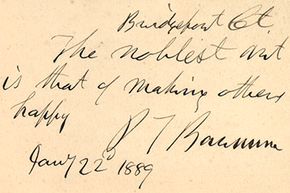 Bridgeport Ct.
The noblest art
is that of making others
happy
P T Barnum
Jany 22d 1889